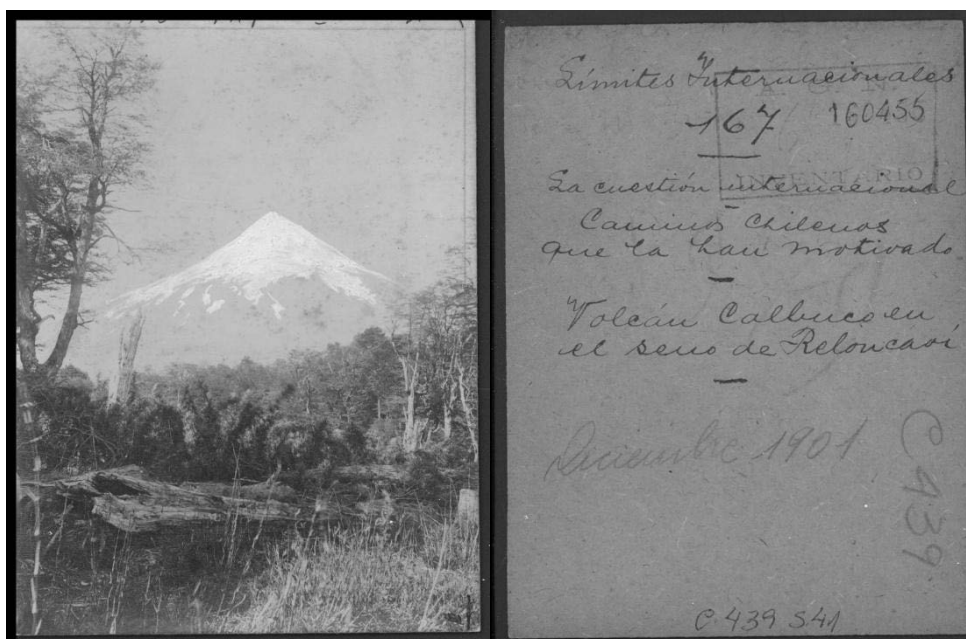 Límites Internacionales
A. G. N.
167
160455
INVENTARIO
La cuestión internacional
Caminos Chilenos
que la han motivado.
Volcán Calbuco en
el seno de Reloncaví
Diciembre 1901
C 439
C 439 S41